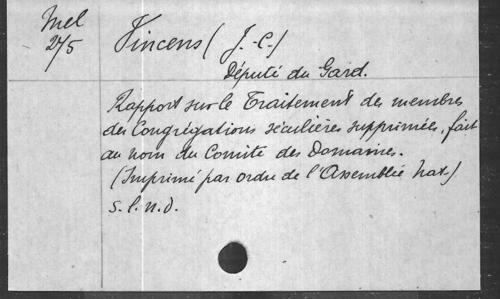 Mel
275
Vincens (J.-C.)
Député du Gard.
Rapport sur le Traitement des membres
des Congrégations séculières supprimées, fait
au nom du Comité des Domaines.
(Imprimé par ordre de l'Assemblée Nat.)
s.l.n.d.